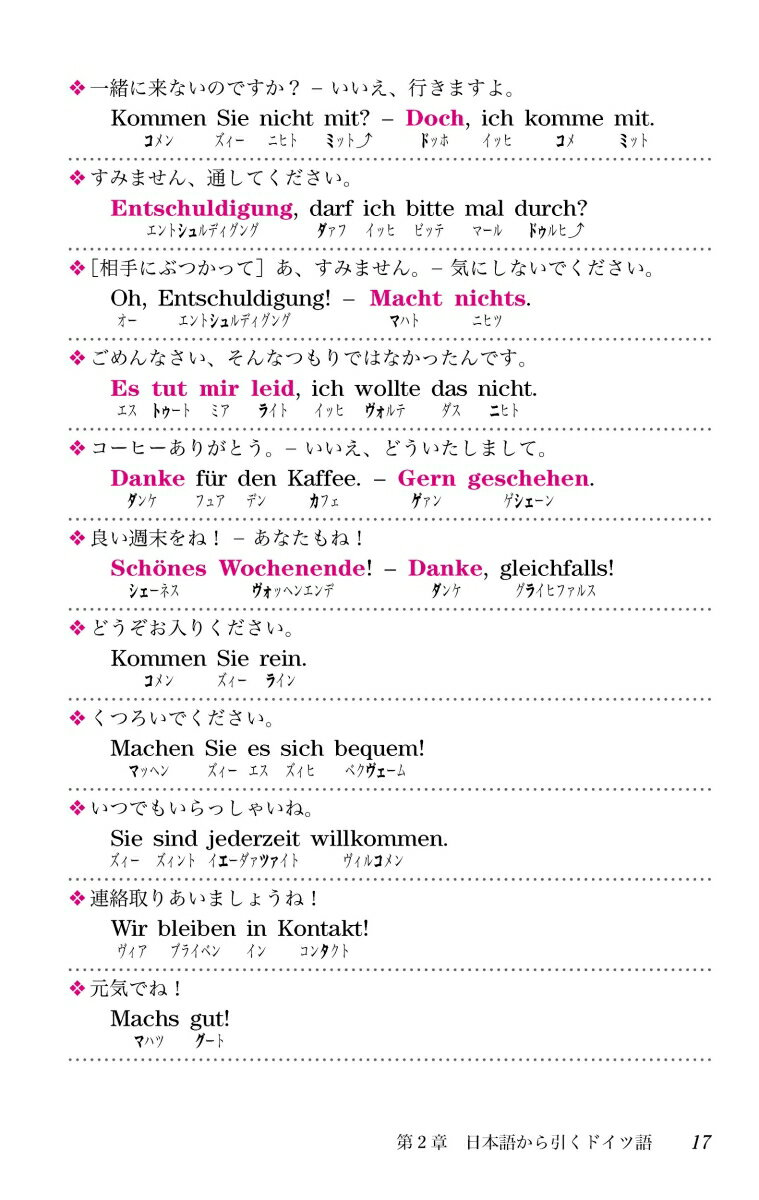 ❖一緒に来ないのですか？ – いいえ、行きますよ。
Kommen Sie nicht mit? – Doch, ich komme mit.
コメン ズィー ニヒト ミット⤴ ドッホ イッヒ コメ ミット
❖すみません、通してください。
Entschuldigung, darf ich bitte mal durch?
エントシュルディグング ダァフ イッヒ ビッテ マール ドゥルヒ⤴
❖［相手にぶつかって］あ、すみません。– 気にしないでください。
Oh, Entschuldigung! – Macht nichts.
オー エントシュルディグング マハト ニヒツ
❖ごめんなさい、そんなつもりではなかったんです。
Es tut mir leid, ich wollte das nicht.
エス トゥート ミア ライト イッヒ ヴォルテ ダス ニヒト
❖コーヒーありがとう。– いいえ、どういたしまして。
Danke für den Kaffee. – Gern geschehen.
ダンケ フュア デン カフェ ゲァン ゲシェーン
❖良い週末をね！ – あなたもね！
Schönes Wochenende! – Danke, gleichfalls!
シェーネス ヴォッヘンエンデ ダンケ グライヒファルス
❖どうぞお入りください。
Kommen Sie rein.
コメン ズィー ライン
❖くつろいでください。
Machen Sie es sich bequem!
マッヘン ズィー エス ズィヒ ベクヴェーム
❖いつでもいらっしゃいね。
Sie sind jederzeit willkommen.
ズィー ズィント イエーダァツァイト ヴィルコメン
❖連絡取りあいましょうね！
Wir bleiben in Kontakt!
ヴィア ブライベン イン コンタクト
❖元気でね！
Machs gut!
マハツ グート
第2章 日本語から引くドイツ語 17